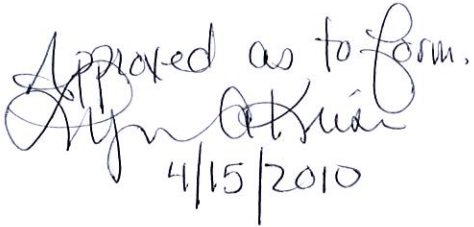 Approved as to form.
4/15/2010